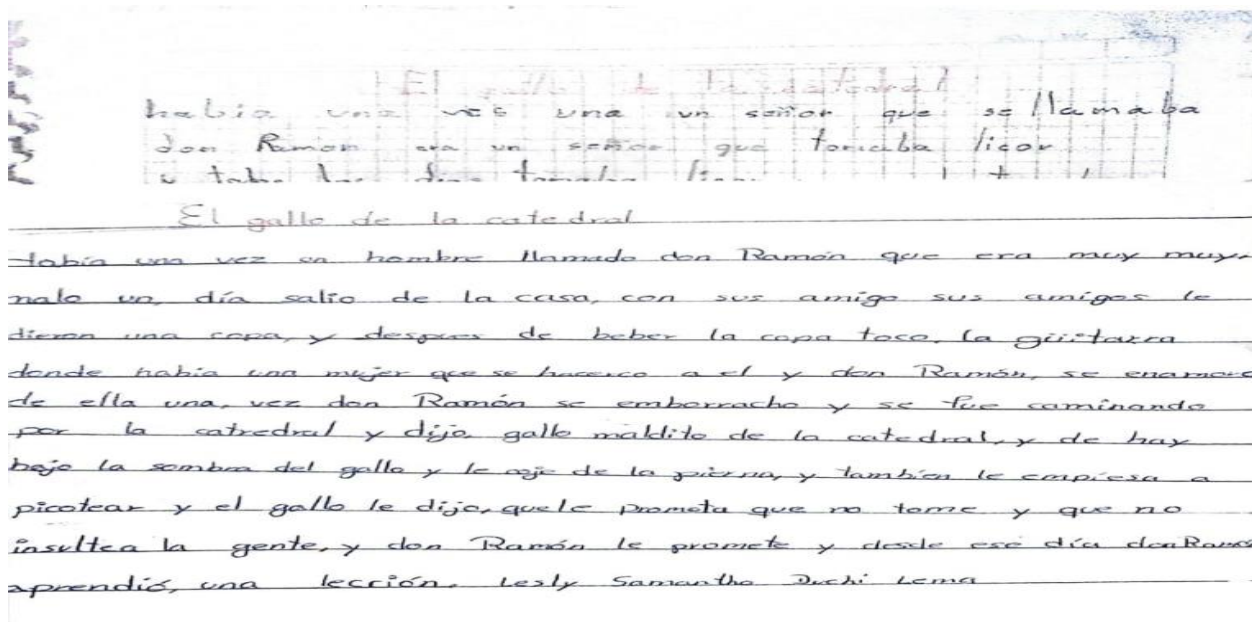 El gallo de la catedral
había una ves una un señor que se llamaba
don Ramon era un señor que tomaba licor
El gallo de la catedral
Había una vez un hombre llamado don Ramón que era muy muy,
malo un, día salio de la casa, con sus amigo sus amigos le
dieron una copa, y despues de beber la copa toco, la güitarra
donde había una mujer que se hacerco a el y don Ramón, se enamoro
de ella una, vez don Ramón se emborracho y se fue caminando
por la catredral y dijo, gallo maldito de la catedral, y de hay
bajo la sombra del gallo y le coje de la pierna, y tambíen le empiesa a
picotear y el gallo le dijo, quele prometa que no tome y que no
insultea la gente, y don Ramón le promete y desde ese día don Ramón
aprendió, una lección. Lesly Samantha Duchi Lema